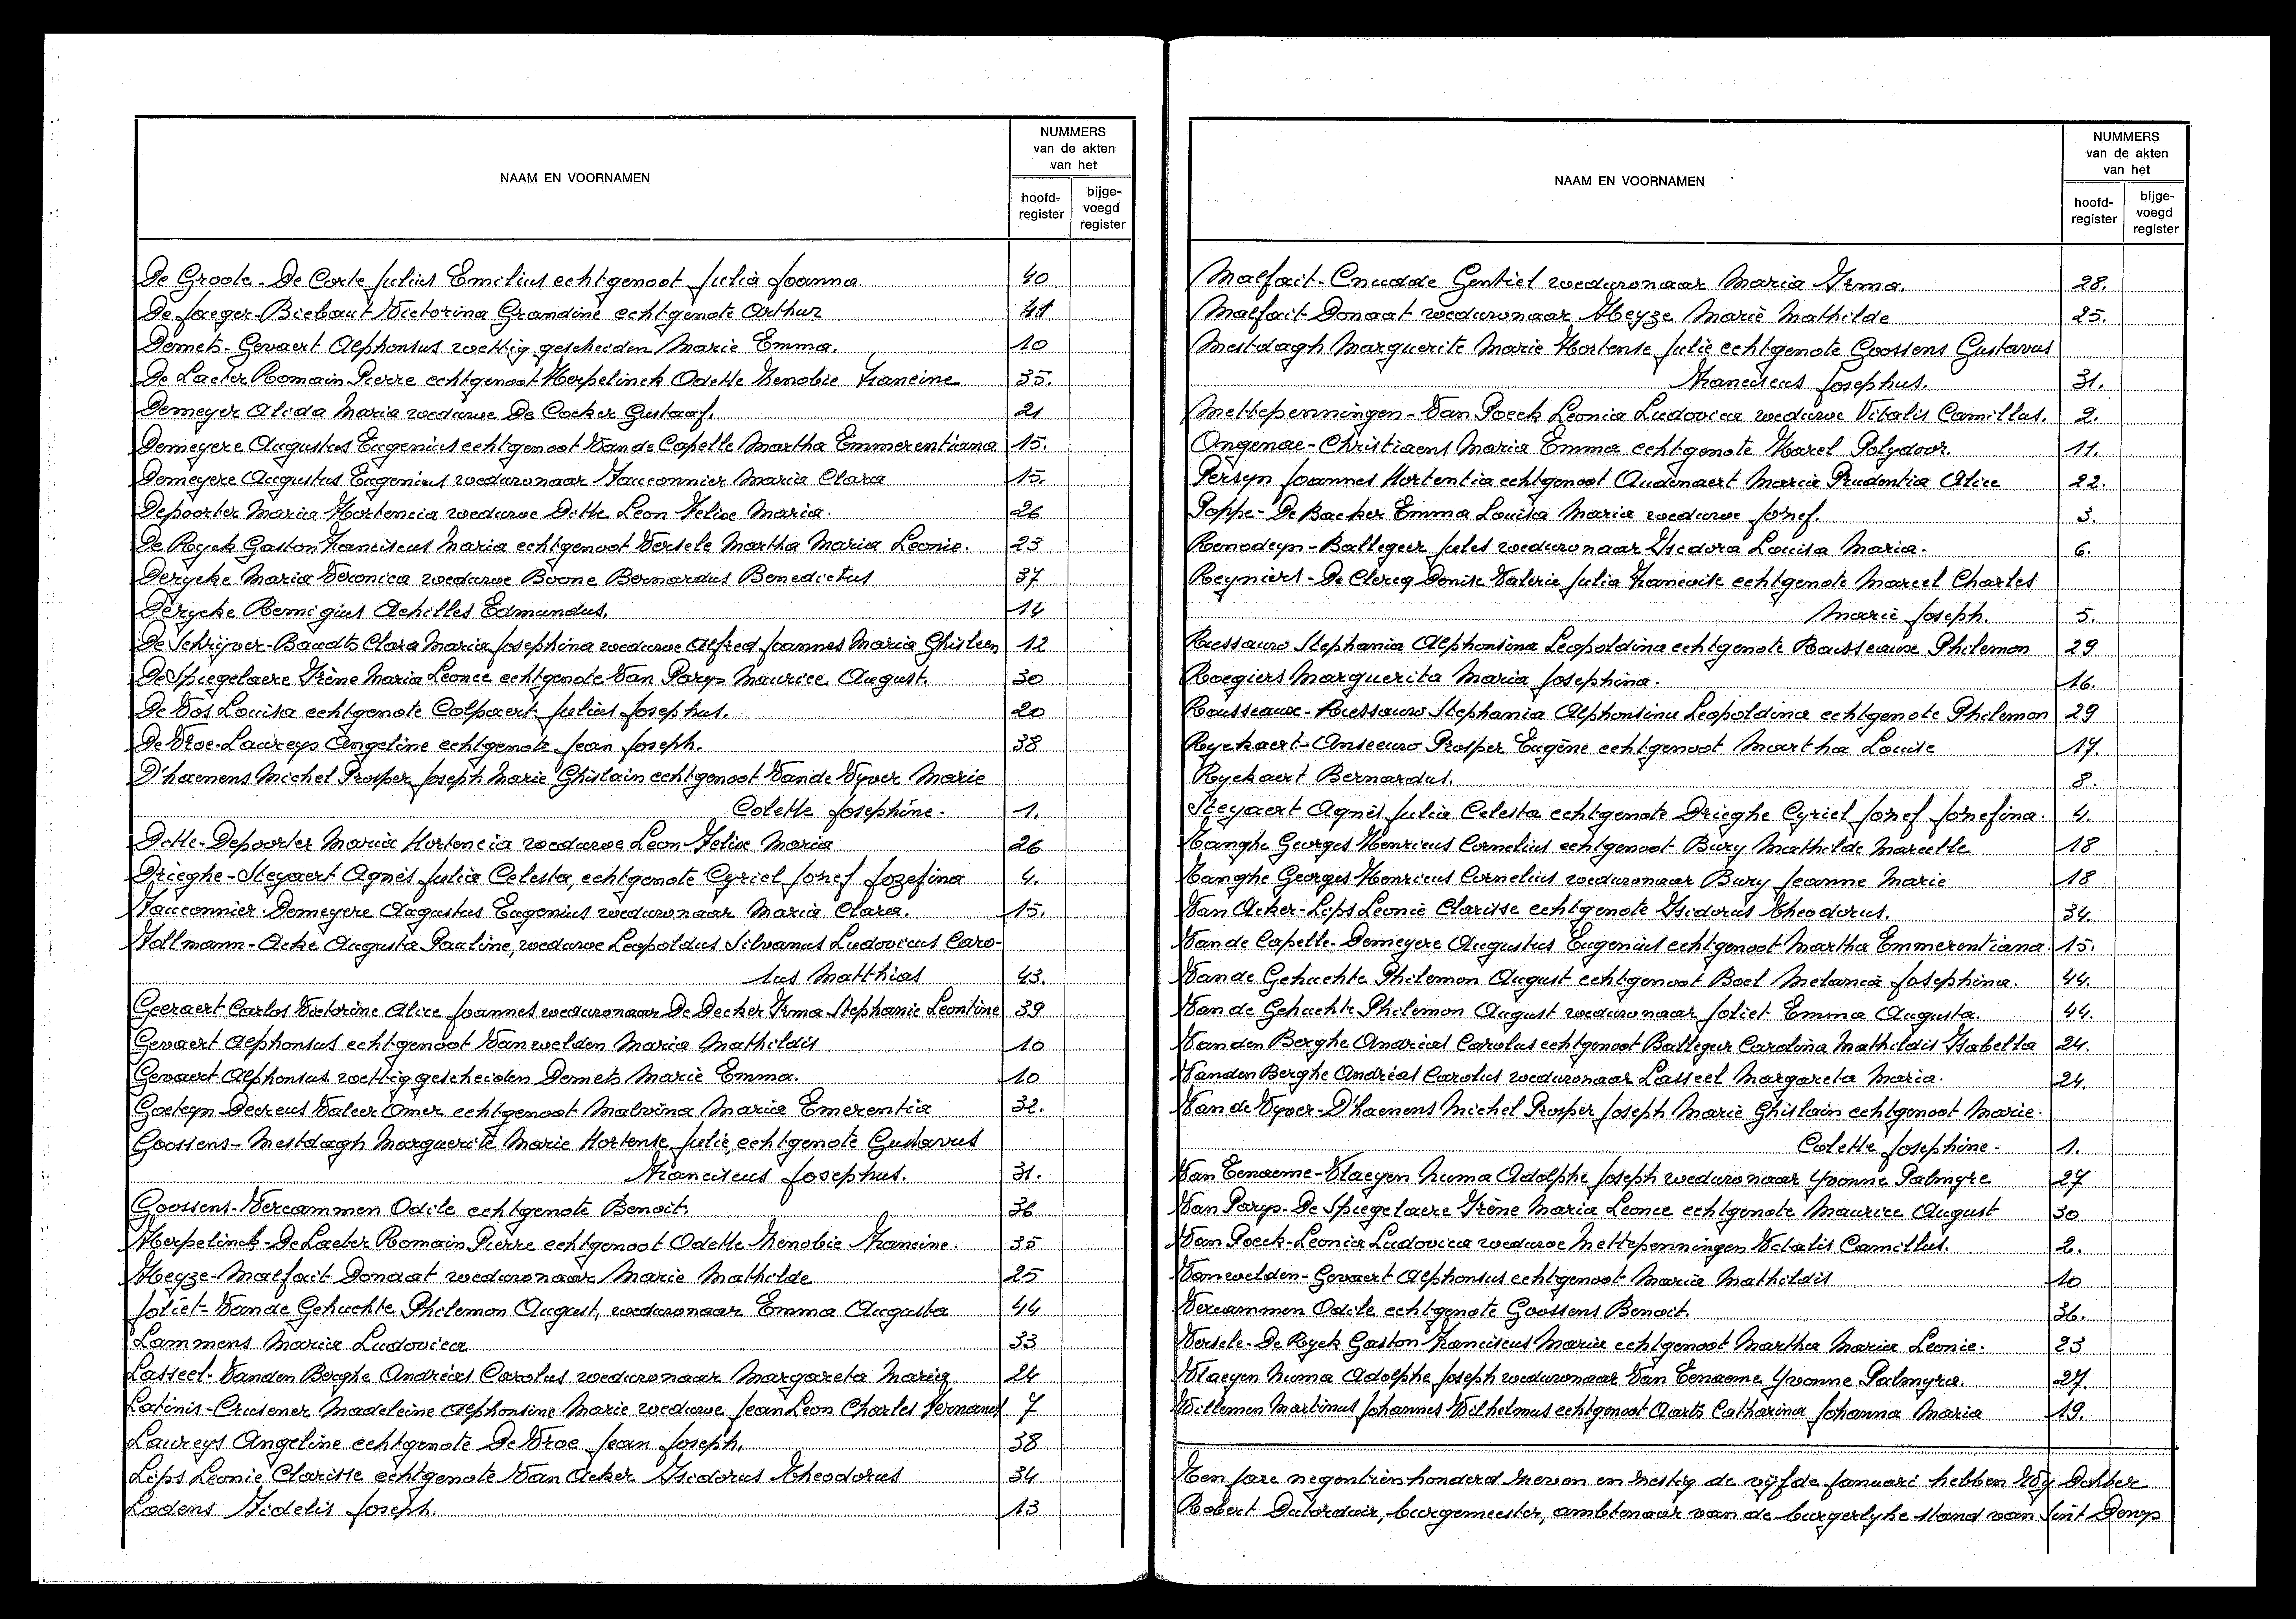 NAAM EN VOORNAMEN
NUMMERS
van de akten
van het
hoofd-
register
bijge-
voegd
register
De Groote - De Corte Julius Emilius echtgenoot Julia Joanna. 40
De Jaeger - Biebaut Victorina Grandine echtgenote Arthur 41
Demets - Gevaert Alphonsus wettig gescheiden Marie Emma. 10
De Laeter Romain Pierre echtgenoot Herpelinck Odette Zenobie Francine 35.
Demeyer Alida Maria weduwe De Cocker Gustaaf. 21
Demeyere Augustus Eugenius echtgenoot Van de Capelle Martha Emmerentiana 15.
Demeyere Augustus Eugenius weduwnaar Fauconnier Maria Clara 15.
Depoorter Maria Hortencia weduwe Dette Leon Felix Maria. 26
De Ryck Gaston Franciscus Maria echtgenoot Versele Martha Maria Leonie. 23
Derycke Maria Veronica weduwe Boone Bernardus Benedictus 37
Derycke Remigius Achilles Edmundus. 14
De Schrijver - Baudts Clara Maria Josephina weduwe Alfred Joannes Maria Ghisleen 12
De Spiegelaere Irène Maria Leonce echtgenote Van Parys Maurice August. 30
De Vos Louisa echtgenote Colpaert Julius Josephus. 20
De Vroe - Laureys Angeline echtgenote Jean Joseph. 38
D'haenens Michel Prosper Joseph Marie Ghislain echtgenoot Van de Vyver Marie
Colette Josephine - 1.
Dette - Depoorter Maria Hortencia weduwe Leon Felix Maria 26
Drieghe - Steyaert Agnès Julia Celesta, echtgenote Cyriel Jozef Jozefina 4.
Fauconnier - Demeyere Augustus Eugenius weduwnaar Maria Clara. 15.
Follmann - Acke Augusta Pauline, weduwe Leopoldus Silvanus Ludovicus Caro-
lus Matthias 43.
Geeraert Carlos Victorine Alice Joannes weduwnaar De Decker Irma Stephanie Leontine 39
Gevaert Alphonsus echtgenoot Vanwelden Maria Mathildis 10
Gevaert Alphonsus wettig gescheiden Demets Marie Emma. 10
Goeteyn Decreus Valeer Omer echtgenoot Malvina Maria Emerentia 32.
Goossens - Mestdagh Marguerite Marie Hortense Julie, echtgenote Gustavus
Franciscus Josephus. 31.
Goossens - Vercammen Odile echtgenote Benoit. 36
Herpelinck - De Laeter Romain Pierre echtgenoot Odette Zenobie Francine. 35
Heyze - Malfait Donaat weduwnaar Marie Mathilde 25
Joliet - Van de Gehuchte Philemon August, weduwnaar Emma Augusta 44
Lammens Maria Ludovica 33
Lasseel - Vanden Berghe Andréas Carolus weduwnaar Margareta Maria 24
Latinis - Crusener Madeleine Alphonsine Marie weduwe Jean Leon Charles Fernand 7
Laureys Angeline echtgenote De Vroe Jean Joseph. 38
Lips Leonie Clarisse echtgenote Van Acker Isidorus Theodorus 34
Lodens Fidelis Joseph. 13
NAAM EN VOORNAMEN
NUMMERS
van de akten
van het
hoofd-
register
bijge-
voegd
register
Malfait - Cnudde Gentiel weduwnaar Maria Irma. 28.
Malfait Donaat weduwnaar Heyze Marie Mathilde 25.
Mestdagh Marguerite Marie Hortense Julie echtgenote Goossens Gustavus
Franciscus Josephus. 31.
Mettepenningen - Van Poeck Leonia Ludovica weduwe Vitalis Camillus. 2.
Ongenae - Christiaens Maria Emma echtgenote Karel Polydoor. 11.
Persyn Joannes Hortentia echtgenoot Audenaert Maria Prudentia Alice 22.
Poppe - De Backer Emma Louisa Maria weduwe Jozef. 3.
Renodeyn - Ballegeer Jules weduwnaar Isidora Louisa Maria. 6.
Reyniers - De Clercq Denise Valerie Julia Francoise echtgenote Marcel Charles
Marie Joseph. 5.
Ressauw Stephania Alphonsina Leopoldina echtgenote Rousseaux Philemon 29
Roegiers Marguerita Maria Josephina. 16.
Rousseaux - Ressauw Stephania Alphonsina Leopoldina echtgenote Philemon 29
Ryckaert - Anseeuw Prosper Eugène echtgenoot Martha Louise 17.
Ryckaert Bernardus. 8.
Steyaert Agnès Julia Celesta echtgenote Drieghe Cyriel Jozef Jozefina. 4.
Tanghe Georges Henricus Cornelius echtgenoot Bury Mathilde Marcelle 18
Tanghe Georges Henricus Cornelius weduwnaar Bury Jeanne Marie 18
Van Acker - Lips Leonie Clarisse echtgenote Isidorus Theodorus. 34.
Van de Capelle - Demeyere Augustus Eugenius echtgenoot Martha Emmerentiana. 15.
Van de Gehuchte Philemon August echtgenoot Boel Melania Josephina. 44.
Van de Gehuchte Philemon August weduwnaar Joliet Emma Augusta. 44.
Vanden Berghe Andréas Carolus echtgenoot Ballegeer Carolina Mathildis Isabella 24.
Vanden Berghe Andréas Carolus weduwnaar Lasseel Margareta Maria. 24.
Van de Vyver - D'haenens Michel Prosper Joseph Marie Ghislain echtgenoot Marie.
Colette Josephine - 1.
Van Eenaeme - Vlaeyen Numa Adolphe Joseph weduwnaar Yvonne Palmyre 27
Van Parys - De Spiegelaere Irène Maria Leonce echtgenote Maurice August 30
Van Poeck - Leonia Ludovica weduwe Mettepenningen Vitalis Camillus. 2.
Vanwelden - Gevaert Alphonsus echtgenoot Maria Mathildis 10
Vercammen Odile echtgenote Goossens Benoit. 36.
Versele - De Ryck Gaston Franciscus Maria echtgenoot Martha Maria Leonie. 23
Vlaeyen Numa Adolphe Joseph weduwnaar Van Eenaeme Yvonne Palmyra. 27.
Willemen Martinus Johannes Wilhelmus echtgenoot Aarts Catharina Johanna Maria 19.
Ten jare negentienhonderd zeven en zestig de vijfde januari hebben Wij Dokter
Robert Dutordoir, burgemeester, ambtenaar van de burgerlyke stand van Sint Denys